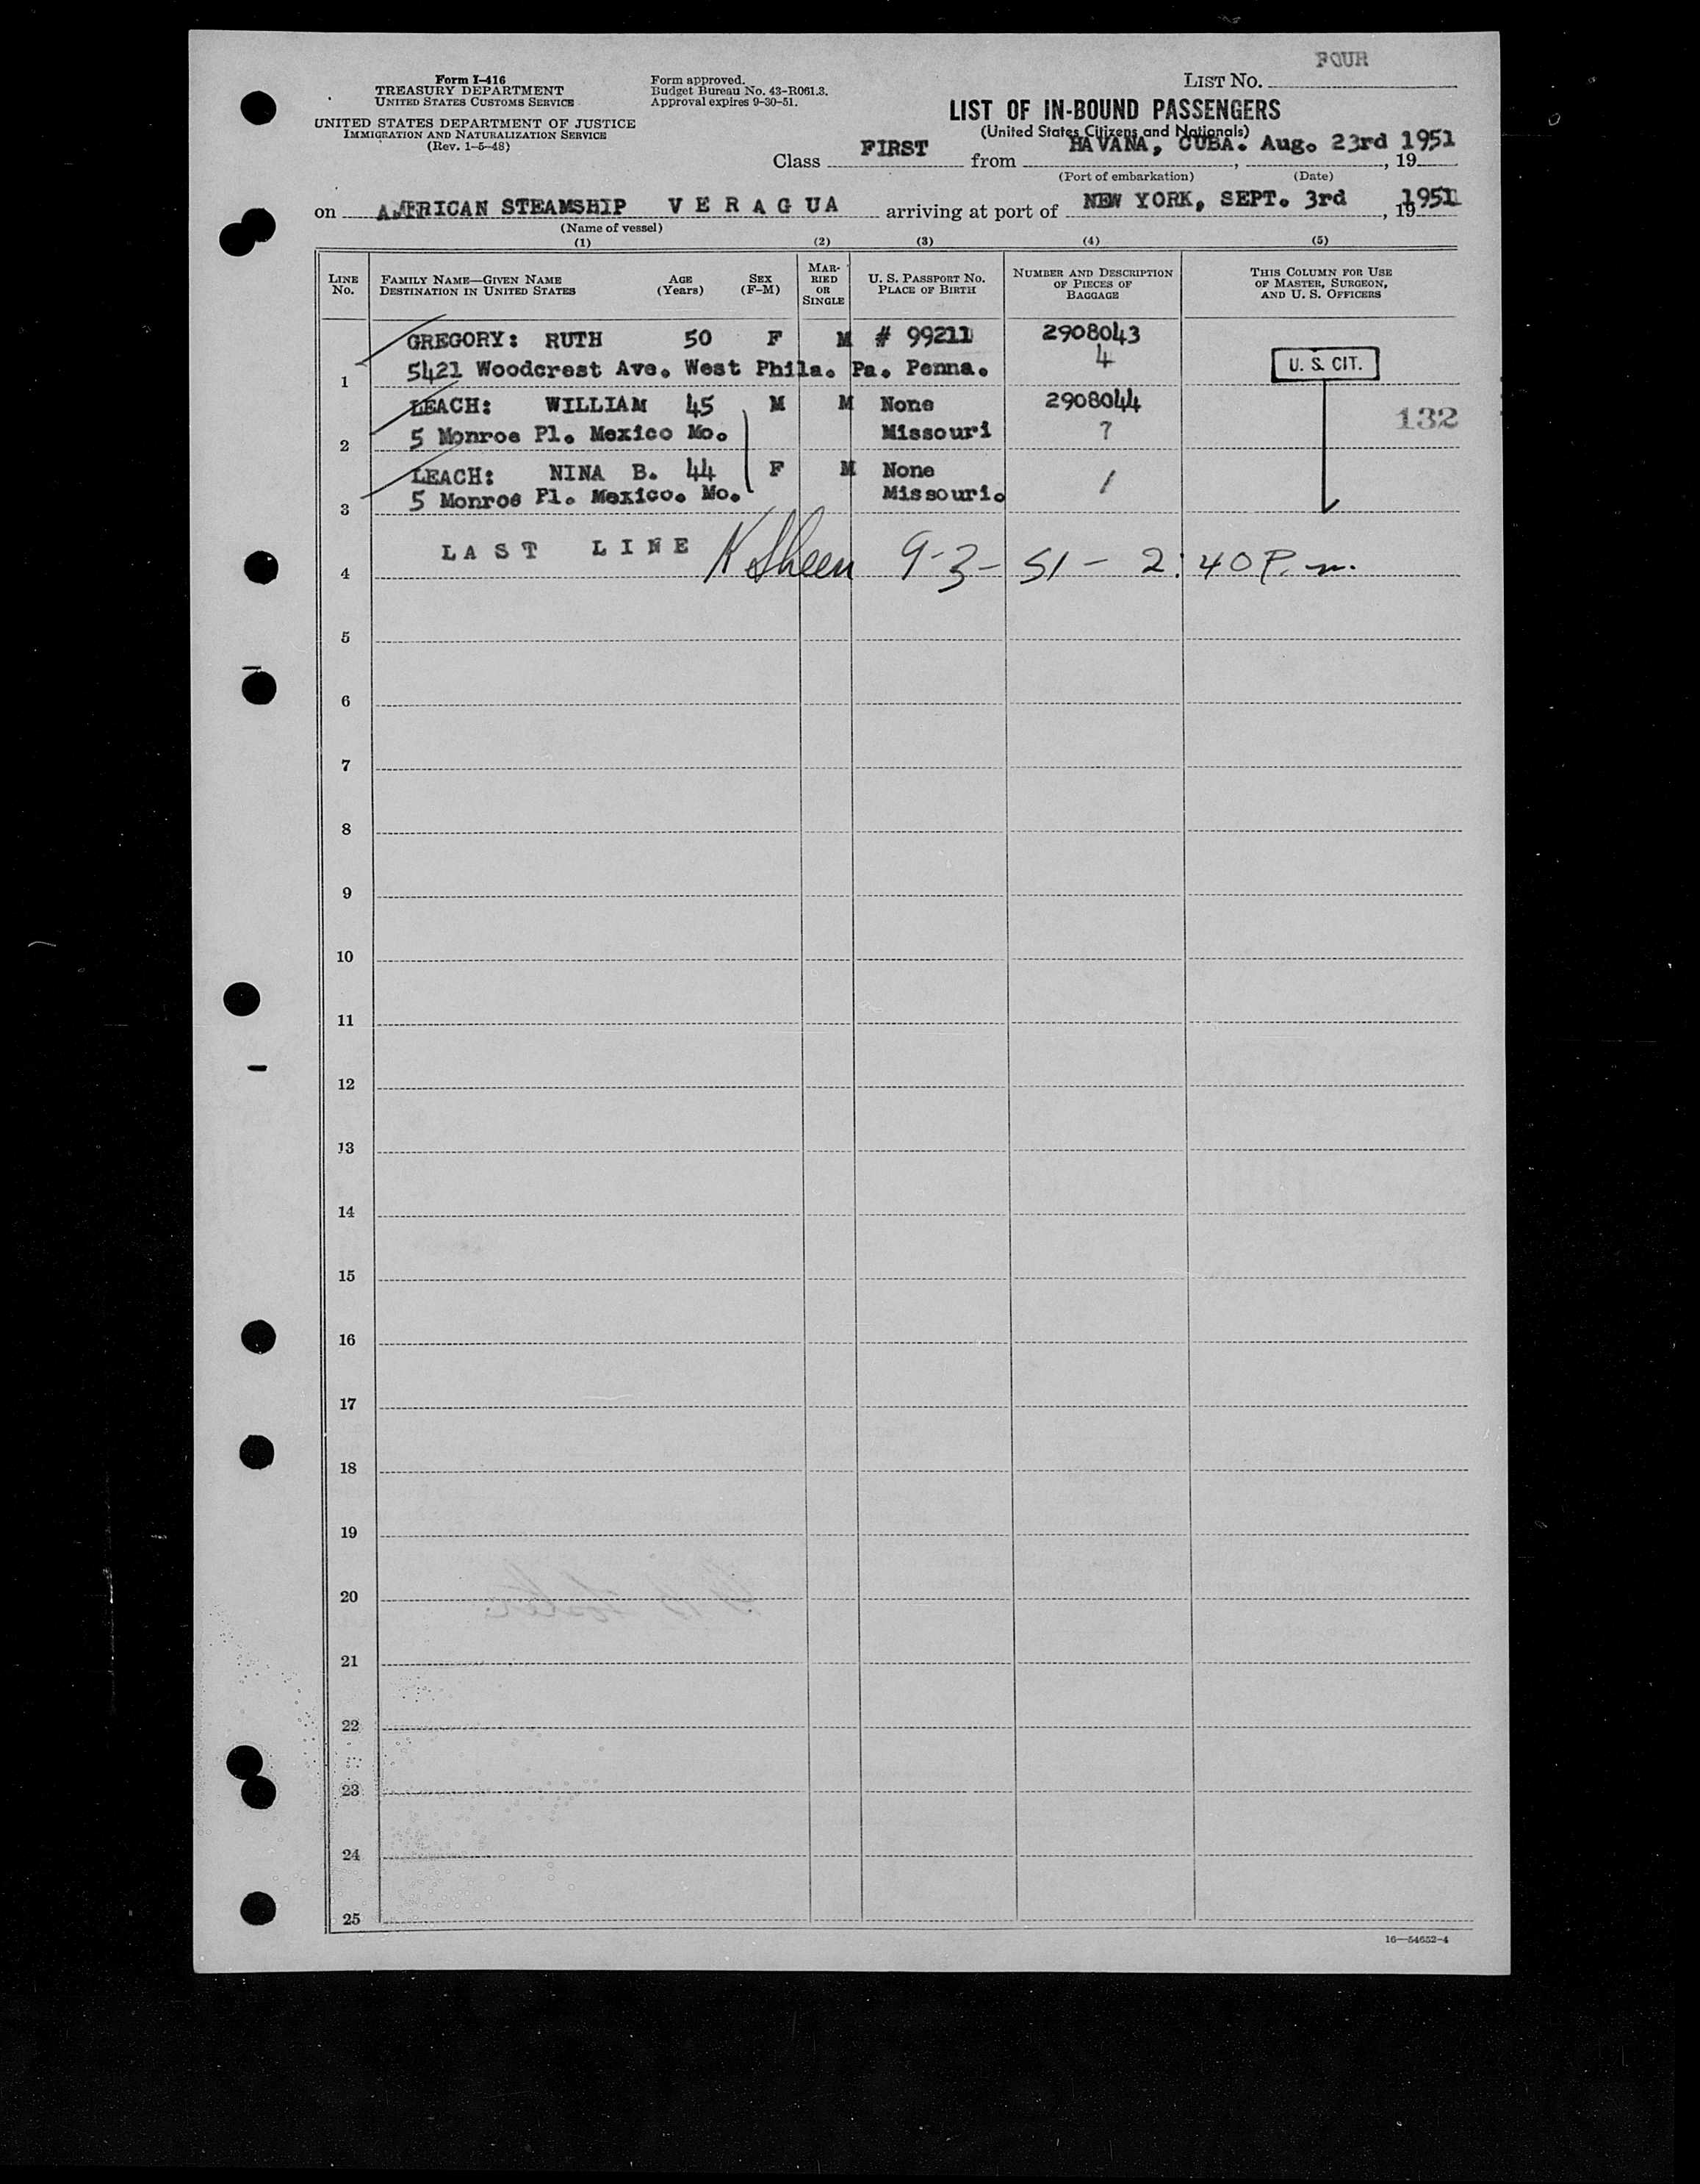 FOUR
Form I-416
TREASURY DEPARTMENT
UNITED STATES CUSTOMS SERVICE
UNITED STATES DEPARTMENT OF JUSTICE
IMMIGRATION AND NATURALIZATION SERVICE
(Rev. 1-5-48)
Form approved.
Budget Bureau No. 43-R061.3.
Approval expires 9-30-51.
LIST NO.
LIST OF IN-BOUND PASSENGERS
(United States Citizens and Nationals)
Class FIRST from HAVANA, CUBA. Aug. 23rd, 19 1951
(Port of embarkation) (Date)
on AMERICAN STEAMSHIP V E R A G U A arriving at port of NEW YORK, SEPT. 3rd, 19 1951
(Name of vessel)
(1) (2) (3) (4) (5)
LINE No.
FAMILY NAME—GIVEN NAME
DESTINATION IN UNITED STATES
AGE (Years)
SEX (F-M)
MARRIED OR SINGLE
U. S. PASSPORT NO.
PLACE OF BIRTH
NUMBER AND DESCRIPTION OF PIECES OF BAGGAGE
THIS COLUMN FOR USE OF MASTER, SURGEON, AND U. S. OFFICERS
GREGORY: RUTH 50 F M # 99211 2908043
1 5421 Woodcrest Ave. West Phila. Pa. Penna. 4 U. S. CIT.
LEACH: WILLIAM 45 M M None 2908044 132
2 5 Monroe Pl. Mexico Mo. Missouri 7
LEACH: NINA B. 44 F M None /
3 5 Monroe Pl. Mexico. Mo. Missouri.
4 LAST LINE K Sheen 9-3-51- 2:40 P.m.
5
6
7
8
9
10
11
12
13
14
15
16
17
18
19
20
21
22
23
24
25
16—54652-4